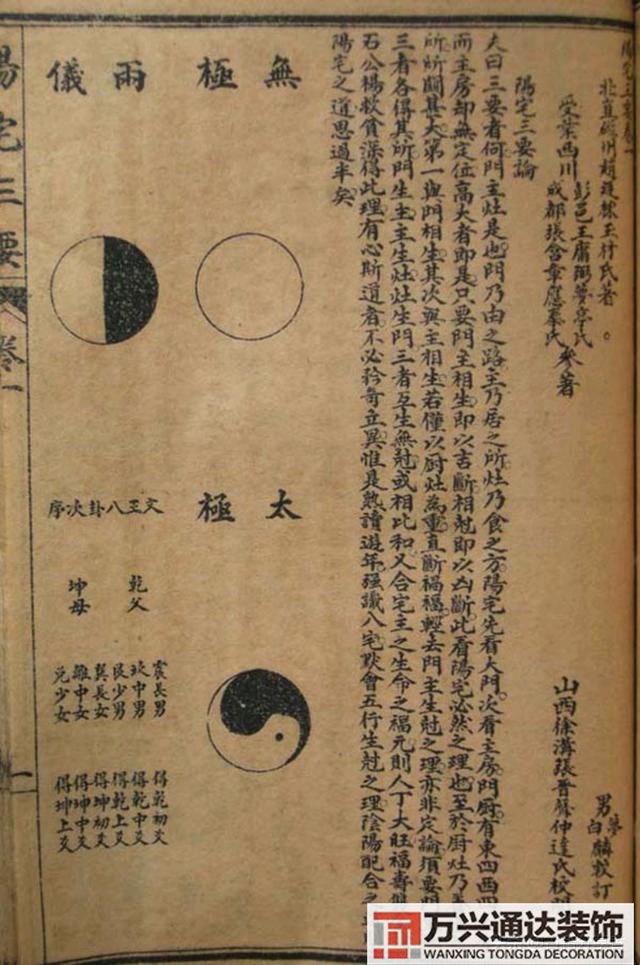 北直磁州趙廷棟玉材氏著。
受業西川
彭邑王庸弼夢亭氏
成都張含章應奉氏
參著
山西徐溝張晉
仲達氏校
男
夢
白
麟校訂
陽宅三要論
夫曰三要者何門主灶是也門乃由之路主乃居之所灶乃食之方陽宅先看大門次看主房門厨有東四西四
而主房却無定位高大者即是只要門主相生即以吉斷相尅即以凶斷此看陽宅必然之理也至於厨灶乃
所所關甚大第一與門相生其次與主相生若僅以厨灶為重直斷禍福輕去門主生尅之理亦非定論須要
三者各得其所門生主主生灶灶生門三者互生無尅或相比和又合宅主之生命之福元則人丁大旺福壽
石公楊救貧深得此理有心斯道者不必矜奇立異惟是熟讀遊年强識八宅默會五行生尅之理陰陽配合之
陽宅之道思過半矣
無極
兩儀
太極
文王八卦次序
乾父
坤母
震長男 得乾初爻
坎中男 得乾中爻
艮少男 得乾上爻
巽長女 得坤初爻
離中女 得坤中爻
兌少女 得坤上爻
陽宅三要
卷一
一
万兴通达装饰
WANXING TONGDA DECORATION